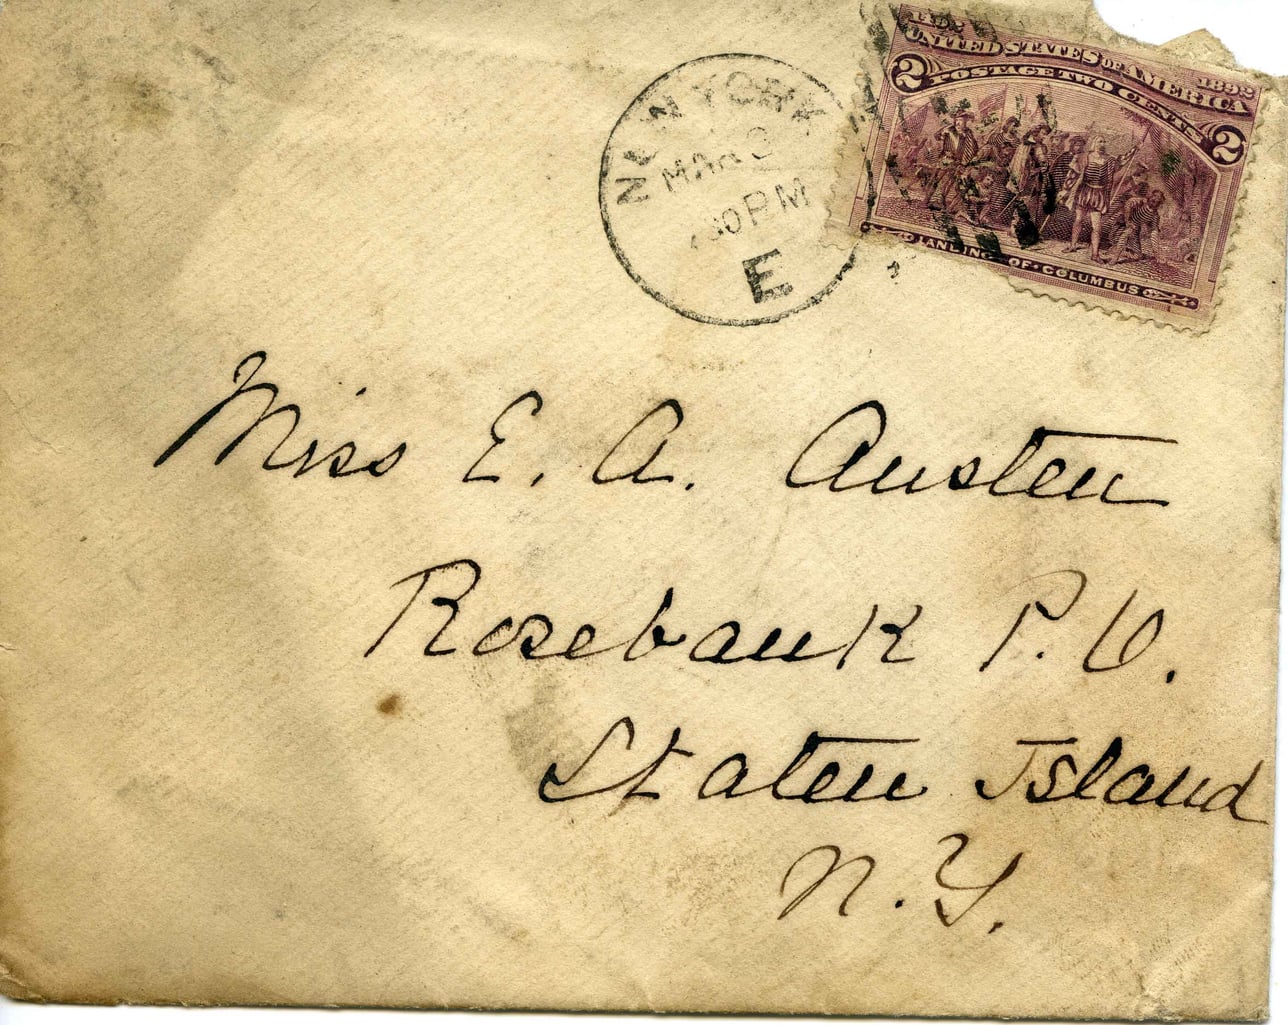 1492 1892
UNITED STATES OF AMERICA
POSTAGE TWO CENTS
2 2
LANDING OF COLUMBUS
NEW YORK
MAR
30 PM
E
Miss E. A. Austen
Rosebank P. O.
Staten Island
N. Y.